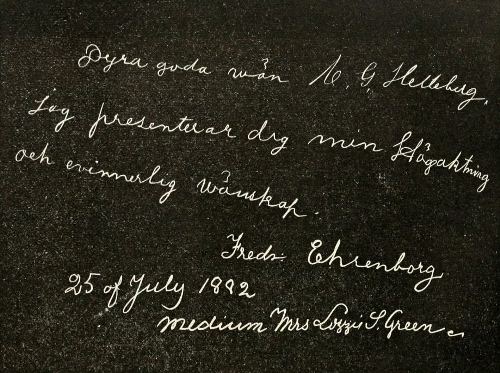 Dyra goda wän C. G. Helleberg.
Jag presenterar dig min Högaktning
och evinnerlig wänskap.
Freds Ehrenborg
25 of July 1882
medium Mrs Lizzie S. Green